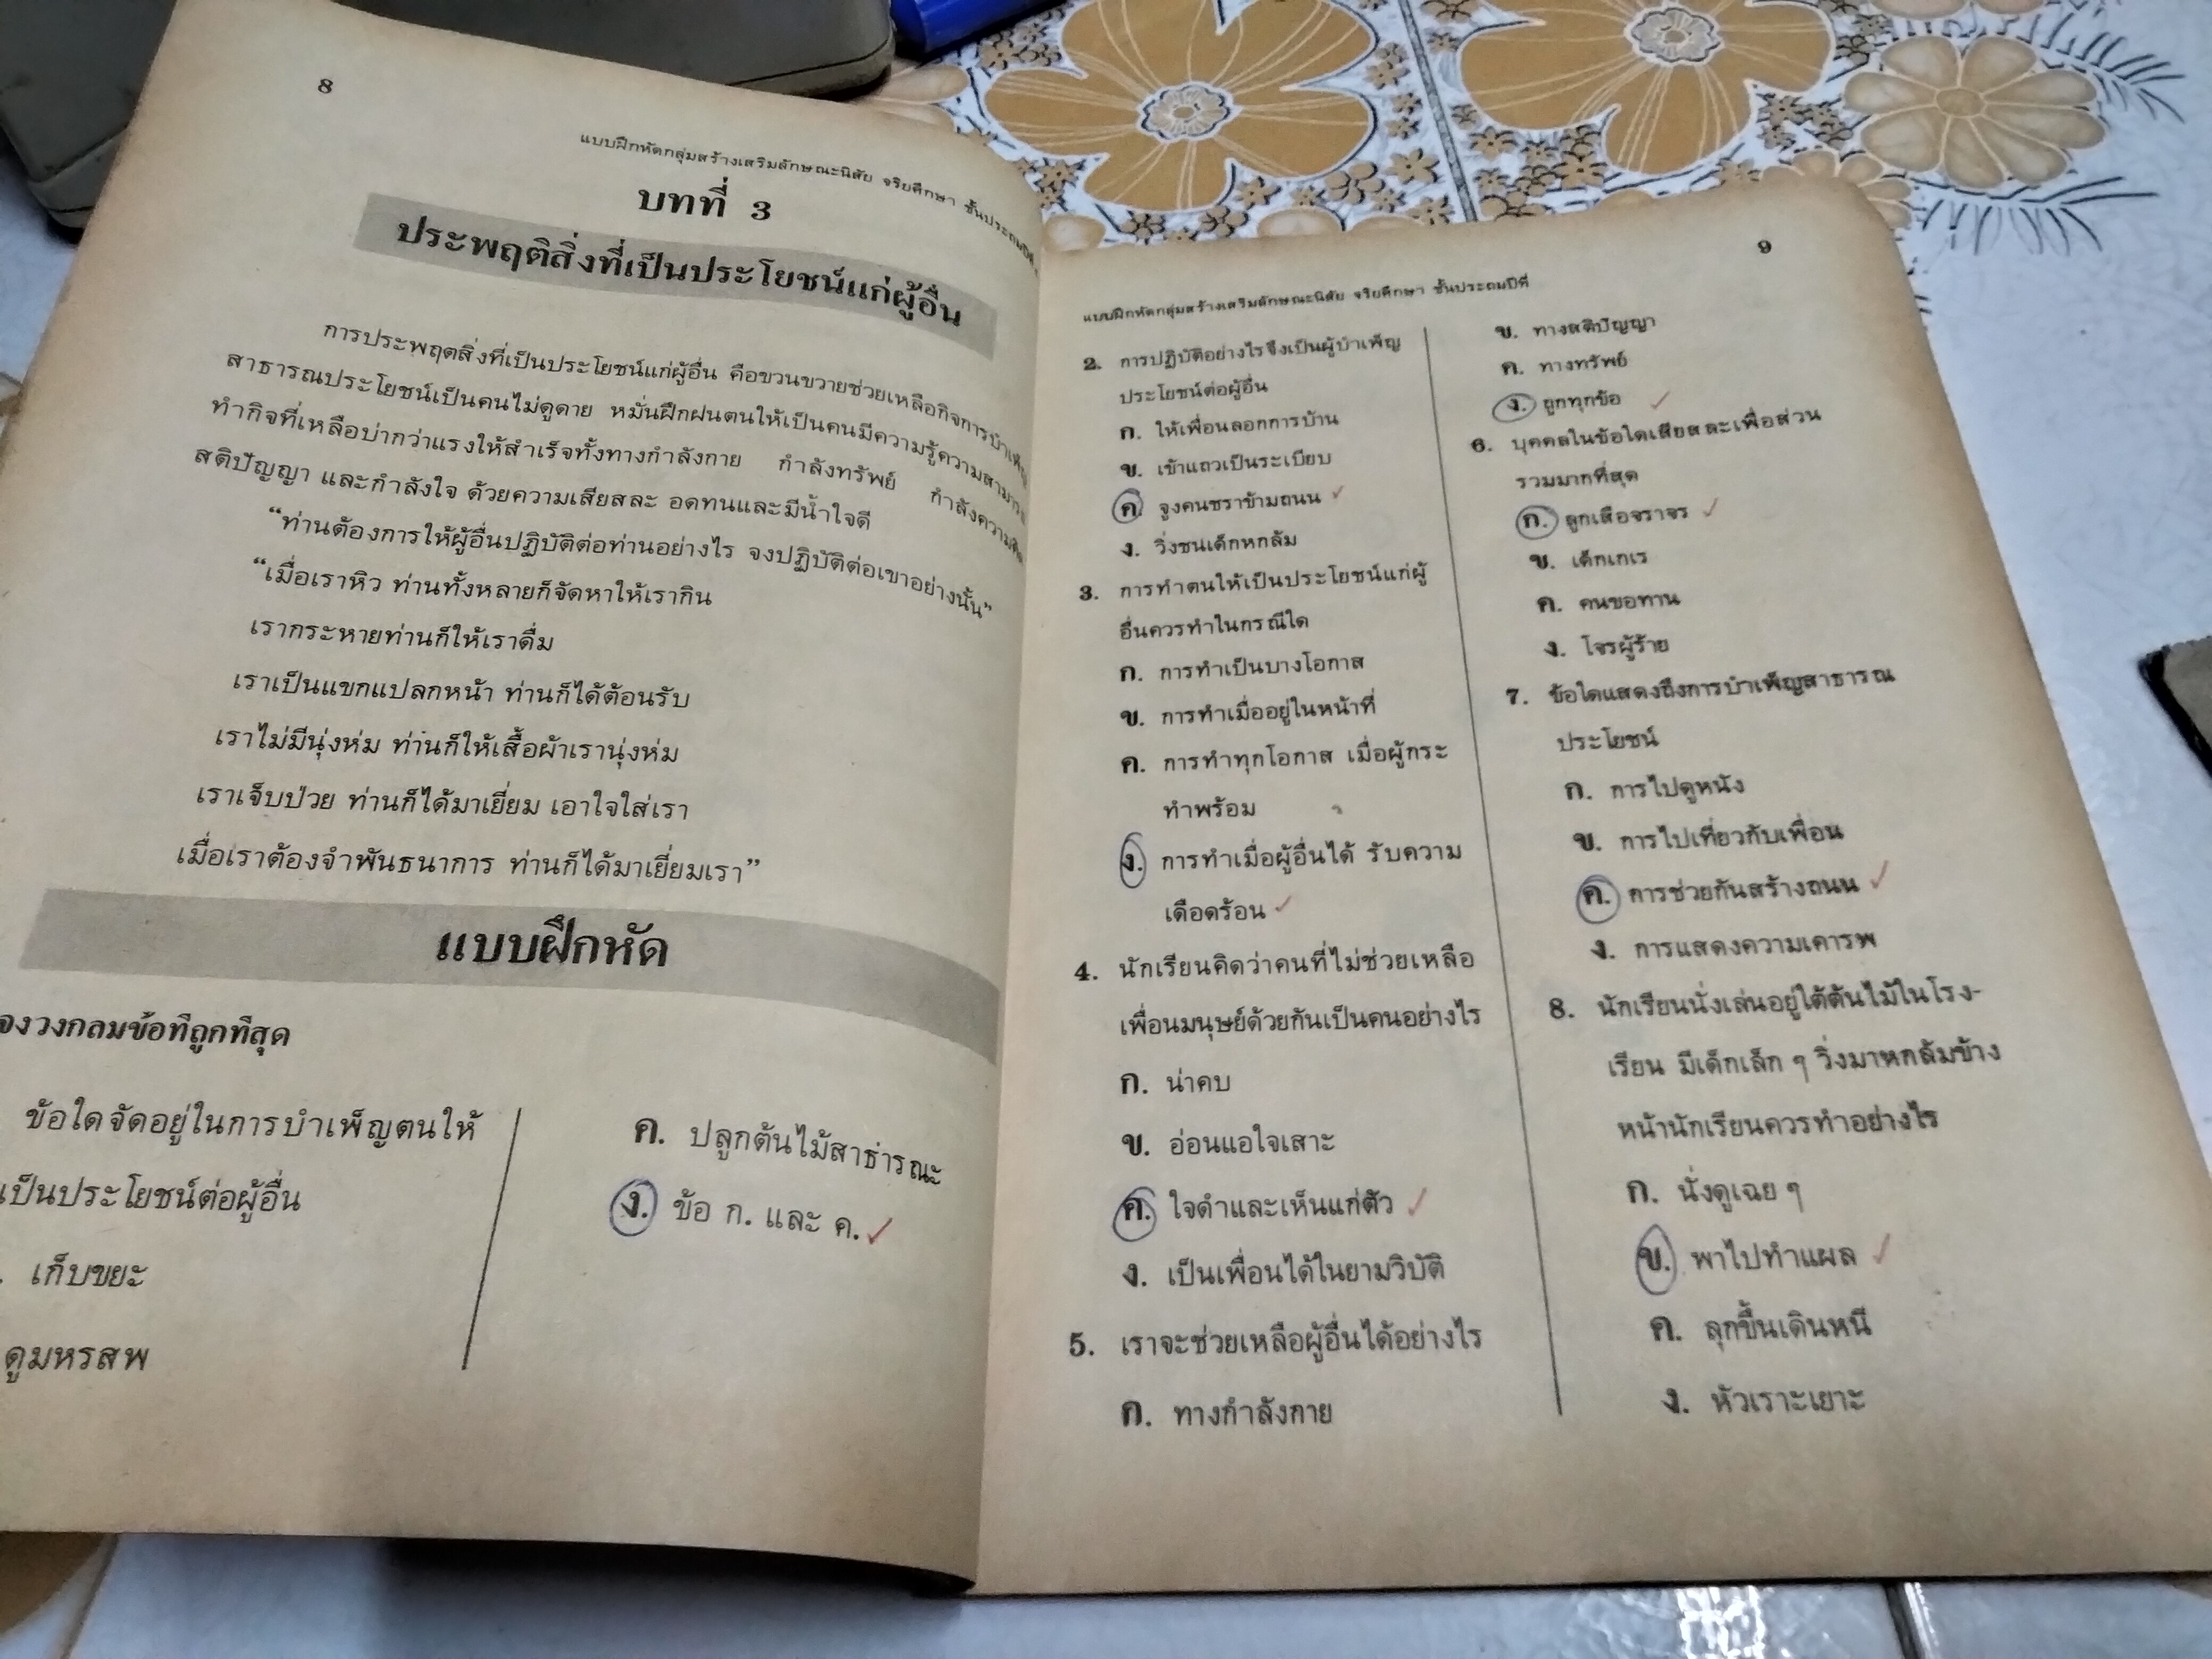 8
แบบฝึกหัดกลุ่มสร้างเสริมลักษณะนิสัย จริยศึกษา ชั้นประถมปีที่
บทที่ 3
ประพฤติสิ่งที่เป็นประโยชน์แก่ผู้อื่น
การประพฤตสิ่งที่เป็นประโยชน์แก่ผู้อื่น คือขวนขวายช่วยเหลือกิจการบำเพ็ญ
สาธารณประโยชน์เป็นคนไม่ดูดาย หมั่นฝึกฝนตนให้เป็นคนมีความรู้ความสามารถ
ทำกิจที่เหลือบ่ากว่าแรงให้สำเร็จทั้งทางกำลังกาย กำลังทรัพย์ กำลังความคิด
สติปัญญา และกำลังใจ ด้วยความเสียสละ อดทนและมีน้ำใจดี
“ท่านต้องการให้ผู้อื่นปฏิบัติต่อท่านอย่างไร จงปฏิบัติต่อเขาอย่างนั้น”
“เมื่อเราหิว ท่านทั้งหลายก็จัดหาให้เรากิน
เรากระหายท่านก็ให้เราดื่ม
เราเป็นแขกแปลกหน้า ท่านก็ได้ต้อนรับ
เราไม่มีนุ่งห่ม ท่านก็ให้เสื้อผ้าเรานุ่งห่ม
เราเจ็บป่วย ท่านก็ได้มาเยี่ยม เอาใจใส่เรา
เมื่อเราต้องจำพันธนาการ ท่านก็ได้มาเยี่ยมเรา”
แบบฝึกหัด
จงวงกลมข้อที่ถูกที่สุด
ข้อใดจัดอยู่ในการบำเพ็ญตนให้
เป็นประโยชน์ต่อผู้อื่น
. เก็บขยะ
ดูมหรสพ
ค. ปลูกต้นไม้สาธารณะ
ง. ข้อ ก. และ ค.
9
แบบฝึกหัดกลุ่มสร้างเสริมลักษณะนิสัย จริยศึกษา ชั้นประถมปีที่
2. การปฏิบัติอย่างไรจึงเป็นผู้บำเพ็ญ
ประโยชน์ต่อผู้อื่น
ก. ให้เพื่อนลอกการบ้าน
ข. เข้าแถวเป็นระเบียบ
ค. จูงคนชราข้ามถนน
ง. วิ่งชนเด็กหกล้ม
3. การทำตนให้เป็นประโยชน์แก่ผู้
อื่นควรทำในกรณีใด
ก. การทำเป็นบางโอกาส
ข. การทำเมื่ออยู่ในหน้าที่
ค. การทำทุกโอกาส เมื่อผู้กระ
ทำพร้อม
ง. การทำเมื่อผู้อื่นได้ รับความ
เดือดร้อน
4. นักเรียนคิดว่าคนที่ไม่ช่วยเหลือ
เพื่อนมนุษย์ด้วยกันเป็นคนอย่างไร
ก. น่าคบ
ข. อ่อนแอใจเสาะ
ค. ใจดำและเห็นแก่ตัว
ง. เป็นเพื่อนได้ในยามวิบัติ
5. เราจะช่วยเหลือผู้อื่นได้อย่างไร
ก. ทางกำลังกาย
ข. ทางสติปัญญา
ค. ทางทรัพย์
ง. ถูกทุกข้อ
6. บุคคลในข้อใดเสียสละเพื่อส่วน
รวมมากที่สุด
ก. ลูกเสือจราจร
ข. เด็กเกเร
ค. คนขอทาน
ง. โจรผู้ร้าย
7. ข้อใดแสดงถึงการบำเพ็ญสาธารณ
ประโยชน์
ก. การไปดูหนัง
ข. การไปเที่ยวกับเพื่อน
ค. การช่วยกันสร้างถนน
ง. การแสดงความเคารพ
8. นักเรียนนั่งเล่นอยู่ใต้ต้นไม้ในโรง-
เรียน มีเด็กเล็ก ๆ วิ่งมาหกล้มข้าง
หน้านักเรียนควรทำอย่างไร
ก. นั่งดูเฉย ๆ
ข. พาไปทำแผล
ค. ลุกขึ้นเดินหนี
ง. หัวเราะเยาะ